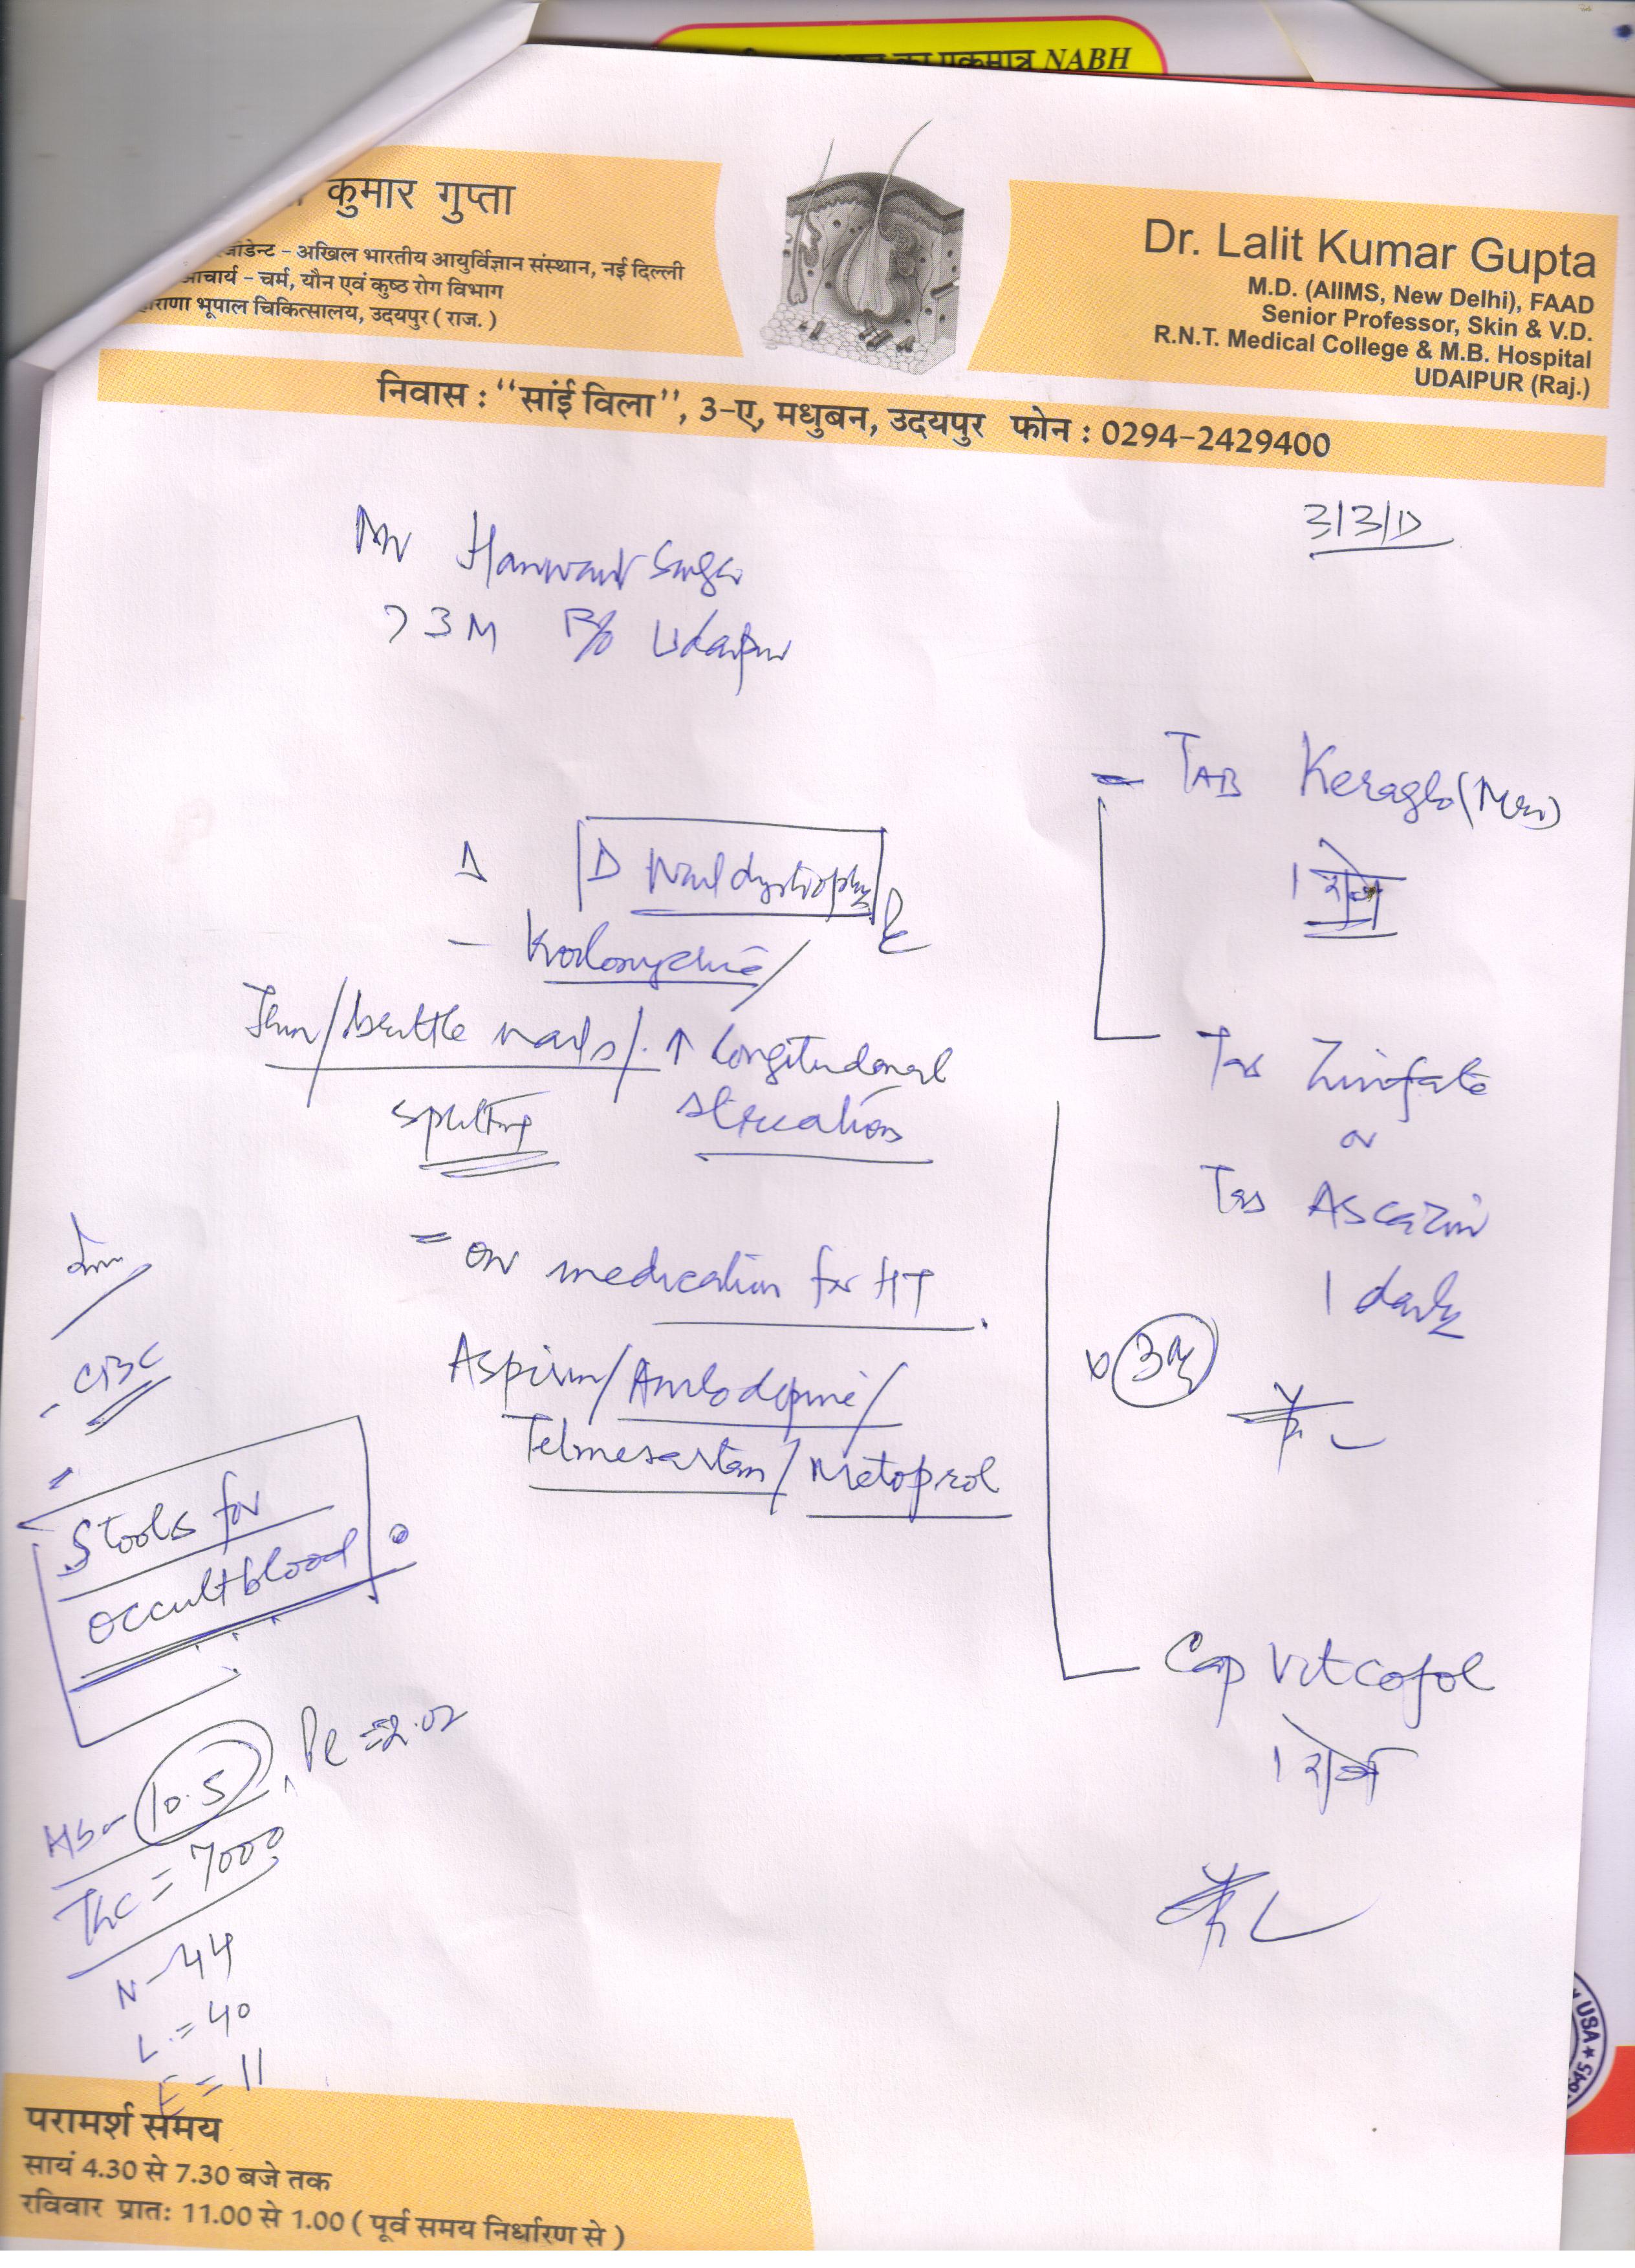 का एकमात्र NABH
कुमार गुप्ता
अखिल भारतीय आयुर्विज्ञान संस्थान, नई दिल्ली
चर्म, यौन एवं कुष्ठ रोग विभाग
भूपाल चिकित्सालय, उदयपुर ( राज. )
Dr. Lalit Kumar Gupta
M.D. (AIIMS, New Delhi), FAAD
Senior Professor, Skin & V.D.
R.N.T. Medical College & M.B. Hospital
UDAIPUR (Raj.)
निवास : "सांई विला", 3-ए, मधुबन, उदयपुर फोन : 0294-2429400
Mr Hanwant Singh
73 M R/o Udaipur
Δ Nail dystrophy
- Koilonychia/
Thin/brittle nails/ ↑ longitudinal
splitting striations
= on medication for HT.
Aspirin/Amlodepine/
Telmesartan/Metoprol
- CBC
Stools for
occult blood
Hb- 10.5
TLC = 7000
N - 44
L = 40
E = 11
- TAB Keraglo (Men)
Tab Zinfate
or
Tab Ascazin
1 daily
Cap Vitcofol
USA
परामर्श समय
सायं 4.30 से 7.30 बजे तक
रविवार प्रातः 11.00 से 1.00 ( पूर्व समय निर्धारण से )